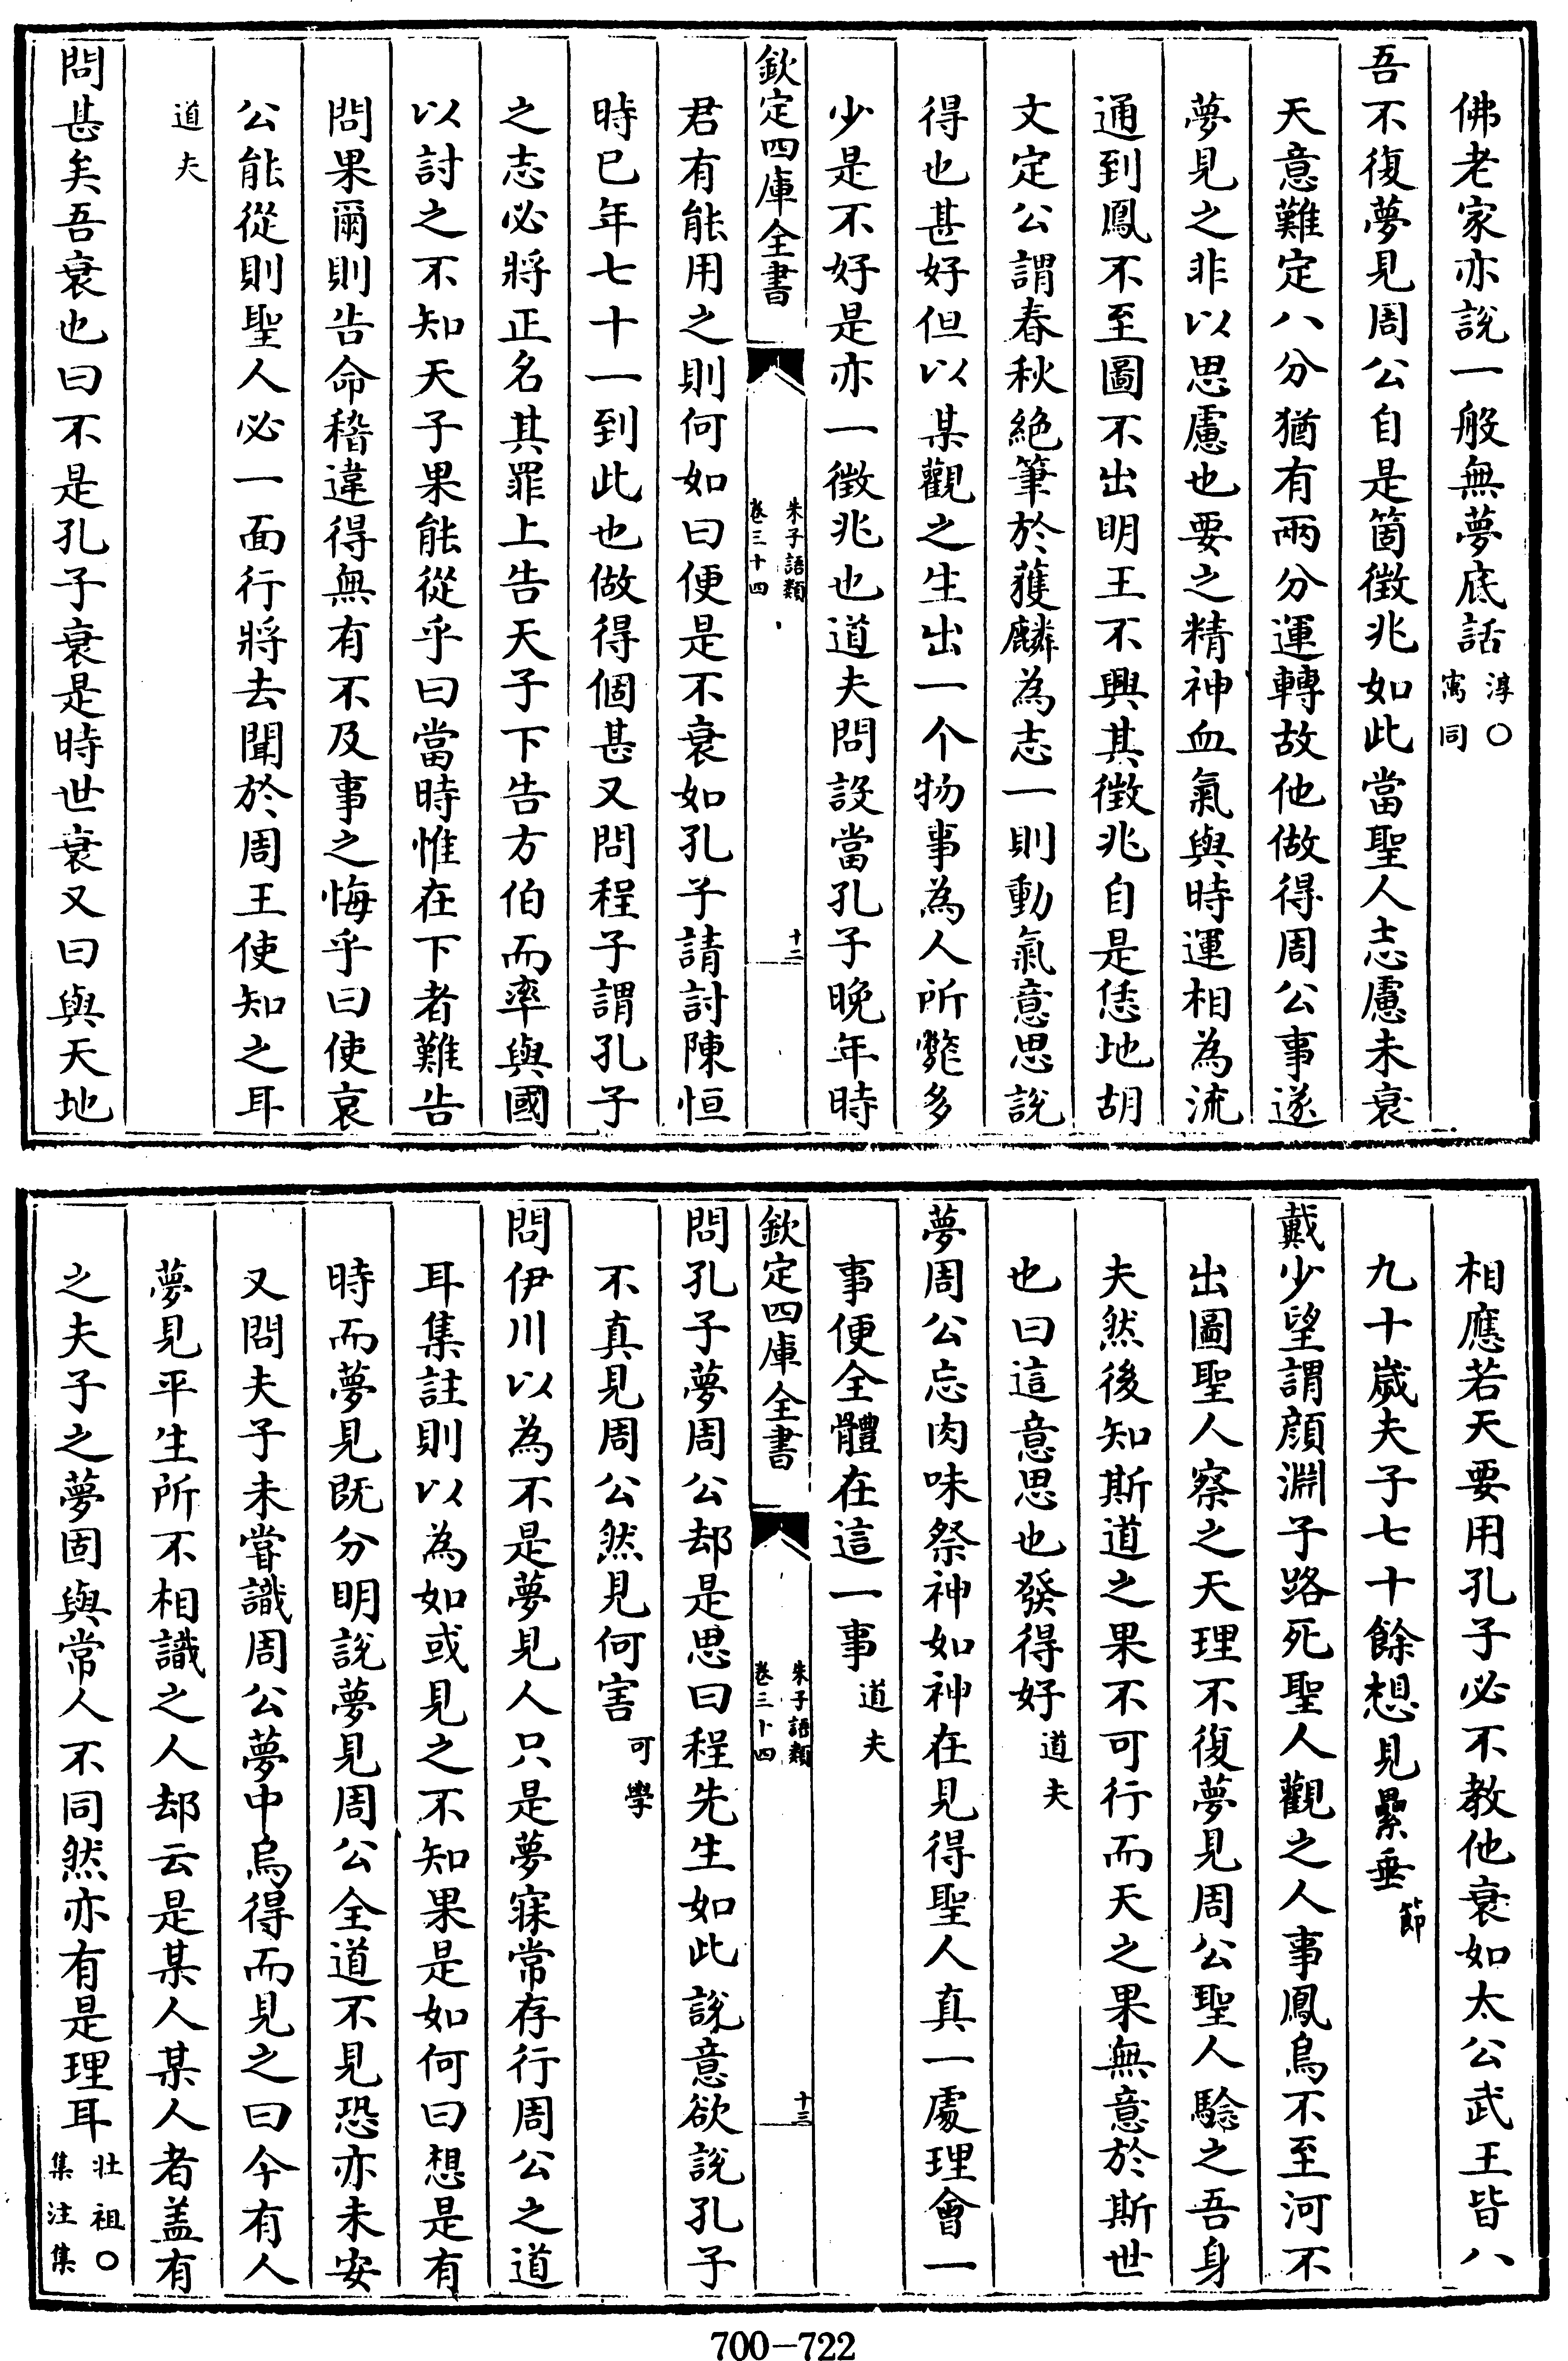 佛老家亦說一般無夢底話淳○寓同
吾不復夢見周公自是箇徴兆如此當聖人志慮未衰
天意難定八分猶有兩分運轉故他做得周公事遂
夢見之非以思慮也要之精神血氣與時運相為流
通到鳳不至圖不出明王不興其徴兆自是恁地胡
文定公謂春秋絶筆於獲麟為志一則動氣意思說
得也甚好但以某觀之生出一个物事為人所斃多
少是不好是亦一徴兆也道夫問設當孔子晚年時
欽定四庫全書
朱子語類
卷三十四
十二
君有能用之則何如曰便是不衰如孔子請討陳恒
時已年七十一到此也做得個甚又問程子謂孔子
之志必將正名其罪上告天子下告方伯而率與國
以討之不知天子果能從乎曰當時惟在下者難告
問果爾則告命稽違得無有不及事之悔乎曰使哀
公能從則聖人必一面行將去聞於周王使知之耳
道夫
問甚矣吾衰也曰不是孔子衰是時世衰又曰與天地
相應若天要用孔子必不教他衰如太公武王皆八
九十歲夫子七十餘想見纍垂節
戴少望謂顔淵子路死聖人觀之人事鳳鳥不至河不
出圖聖人察之天理不復夢見周公聖人驗之吾身
夫然後知斯道之果不可行而天之果無意於斯世
也曰這意思也發得好道夫
夢周公忘肉味祭神如神在見得聖人真一處理會一
事便全體在這一事道夫
欽定四庫全書
朱子語類
卷三十四
十三
問孔子夢周公却是思曰程先生如此說意欲說孔子
不真見周公然見何害可學
問伊川以為不是夢見人只是夢寐常存行周公之道
耳集註則以為如或見之不知果是如何曰想是有
時而夢見既分明說夢見周公全道不見恐亦未安
又問夫子未嘗識周公夢中烏得而見之曰今有人
夢見平生所不相識之人却云是某人某人者盖有
之夫子之夢固與常人不同然亦有是理耳壯祖○集注集
700-722